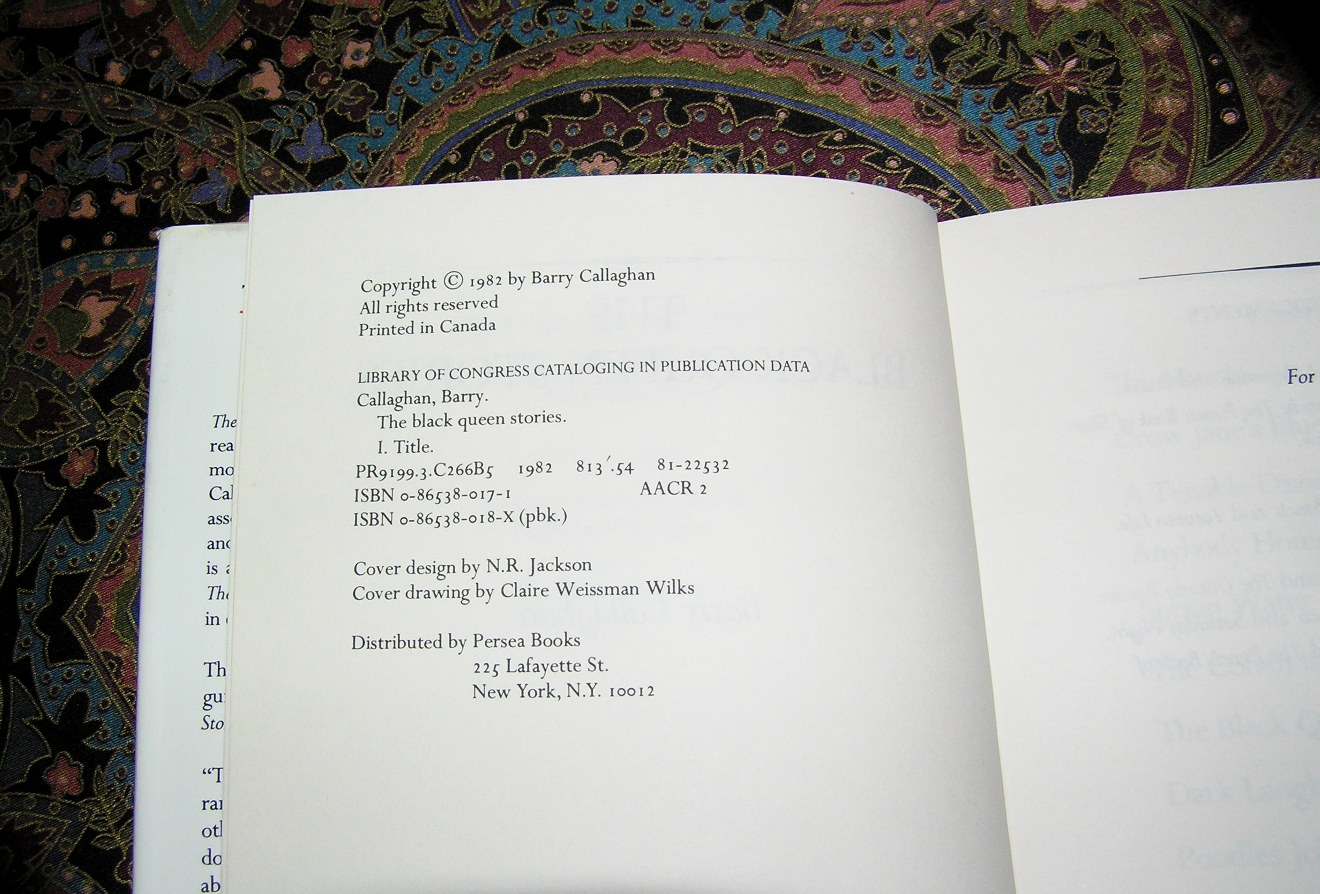 Copyright © 1982 by Barry Callaghan
All rights reserved
Printed in Canada
LIBRARY OF CONGRESS CATALOGING IN PUBLICATION DATA
Callaghan, Barry.
The black queen stories.
I. Title.
PR9199.3.C266B5 1982 813′.54 81-22532
ISBN 0-86538-017-1 AACR 2
ISBN 0-86538-018-X (pbk.)
Cover design by N.R. Jackson
Cover drawing by Claire Weissman Wilks
Distributed by Persea Books
225 Lafayette St.
New York, N.Y. 10012
The
rea
mo
Cal
ass
and
is
The
in
Th
gu
Sto
“T
ran
oth
do
ab
For